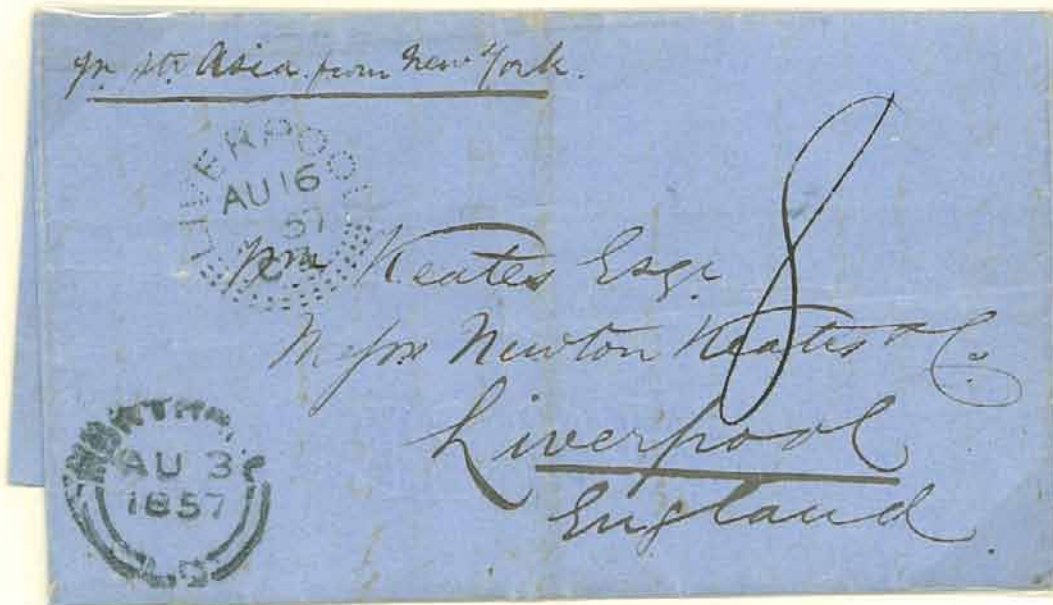 pr. str. Asia from New York.
LIVERPOOL
AU 16
57
Wm Keates Esqr
Messrs Newton Keates & Co.
8
Liverpool
England
AU 3
1857